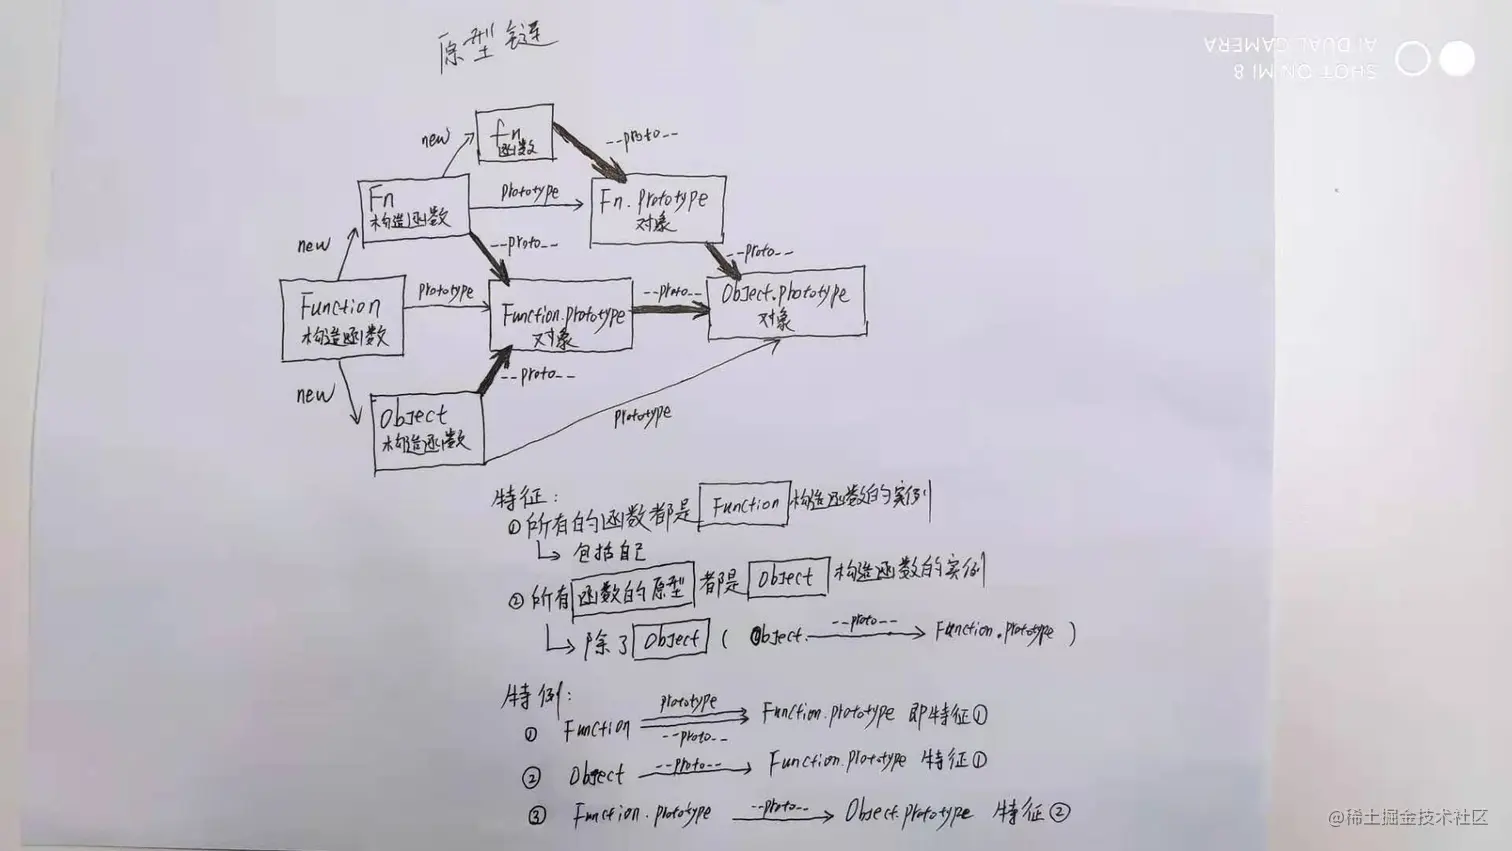 原型链
SHOT ON MI 8
AI DUAL CAMERA
new
fn
函数
--proto--
Fn
构造函数
prototype
Fn.prototype
对象
new
--proto--
--proto--
Function
构造函数
prototype
Function.prototype
对象
--proto--
Object.prototype
对象
new
--proto--
Object
构造函数
prototype
特征:
① 所有的函数都是 Function 构造函数的实例
包括自己
② 所有 函数的原型 都是 Object 构造函数的实例
除了 Object ( Object. --proto-- Function.prototype )
特例:
① Function prototype --proto-- Function.prototype 即特征①
② Object --proto-- Function.prototype 特征①
③ Function.prototype --proto-- Object.prototype 特征②
@稀土掘金技术社区